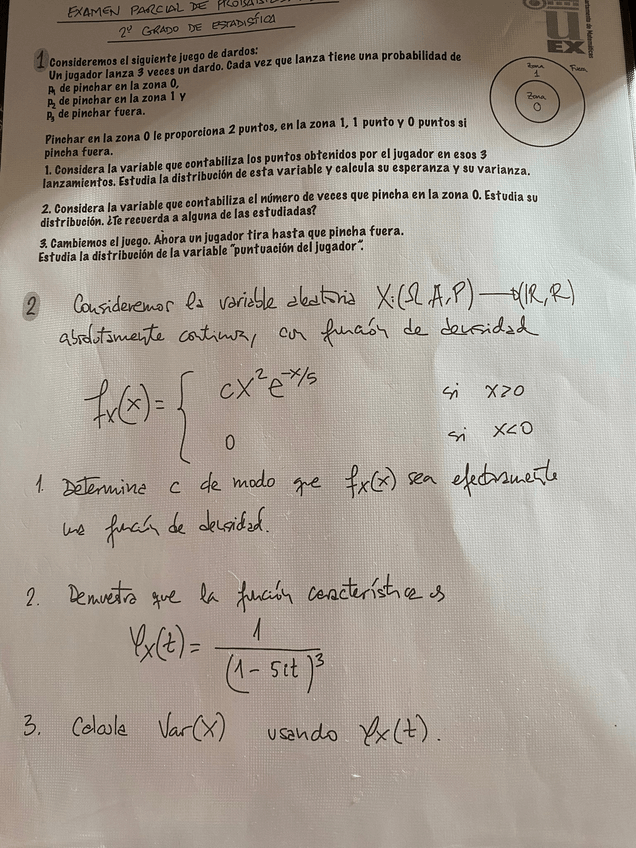 EXAMEN PARCIAL DE
2º GRADO DE ESTADÍSTICA
u
EX
1 Consideremos el siguiente juego de dardos:
Un jugador lanza 3 veces un dardo. Cada vez que lanza tiene una probabilidad de
p₁ de pinchar en la zona 0,
p₂ de pinchar en la zona 1 y
p₃ de pinchar fuera.
Zona
1
Fuera
Zona
0
Pinchar en la zona 0 le proporciona 2 puntos, en la zona 1, 1 punto y 0 puntos si
pincha fuera.
1. Considera la variable que contabiliza los puntos obtenidos por el jugador en esos 3
lanzamientos. Estudia la distribución de esta variable y calcula su esperanza y su varianza.
2. Considera la variable que contabiliza el número de veces que pincha en la zona 0. Estudia su
distribución. ¿Te recuerda a alguna de las estudiadas?
3. Cambiemos el juego. Ahora un jugador tira hasta que pincha fuera.
Estudia la distribución de la variable "puntuación del jugador".
2 Consideremos la variable aleatoria X:(Ω,A,P)→(ℝ,R)
absolutamente continua, con función de densidad
fₓ(x) = { cx²e^(-x/5) si x≥0
0 si x<0
1. Determina c de modo que fₓ(x) sea efectivamente
una función de densidad.
2. Demuestra que la función característica es
φₓ(t) = 1 / (1 - 5it)³
3. Calcula Var(X) usando φₓ(t).